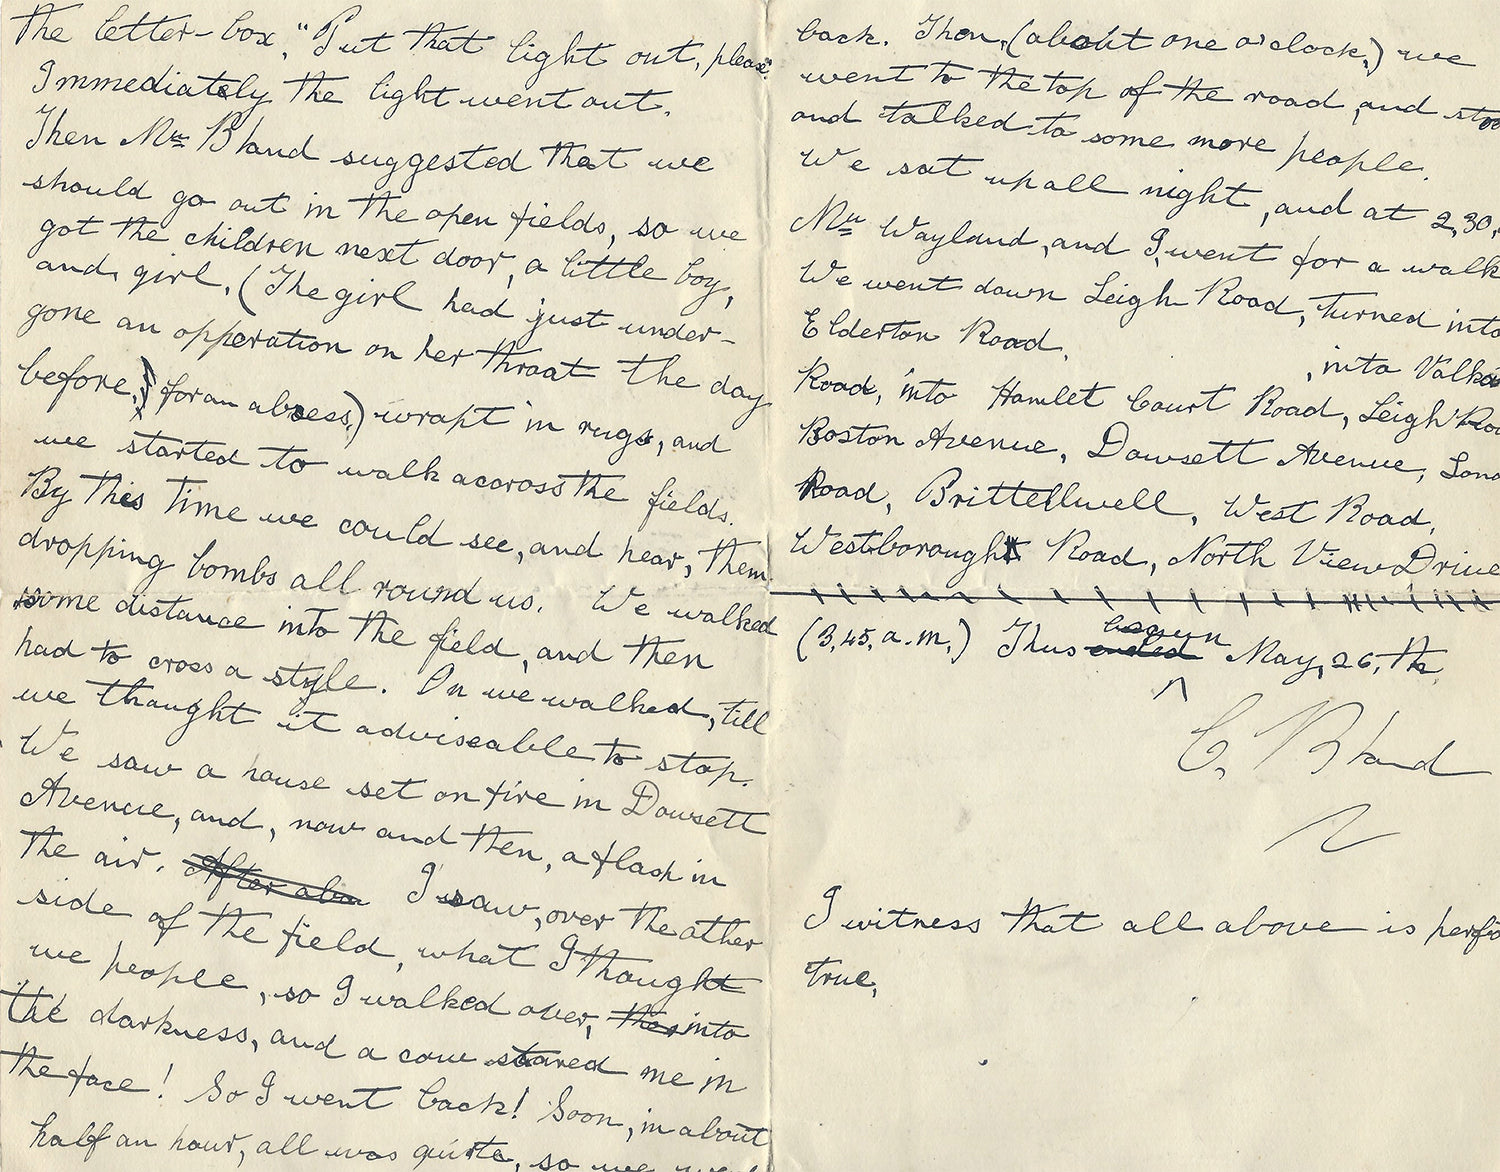 the letter-box, "Put that light out, please".
Immediately the light went out.
Then Mrs Bland suggested that we
should go out in the open fields, so we
got the children next door, a little boy,
and girl, (The girl had just under-
gone an opperation on her throat the day
before, for an absess,) wrapt in rugs, and
we started to walk accross the fields.
By this time we could see, and hear, them
dropping bombs all round us. We walked
some distance into the field, and then
had to cross a style. On we walked, till
we thought it adviseable to stop.
We saw a house set on fire in Dowsett
Avenue, and, now and then, a flash in
the air. After abo I saw, over the other
side of the field, what I thought
we people, so I walked over, into
the darkness, and a cow stared me in
the face! So I went back! Soon, in about
half an hour, all was quite, so we went
back. Then, (about one o'clock,) we
went to the top of the road, and stoo
and talked to some more people.
We sat up all night, and at 2,30,
Mr Wayland, and I, went for a walk
We went down Leigh Road, turned into
Elderton Road.
, into Valk
Road, into Hamlet Court Road, Leigh Roa
Boston Avenue, Dowsett Avenue, Lond
Road, Brittellwell, West Road,
Westborough Road, North View Drive
(3,45, a.m.) Thus ended began May, 26, th
C. Bland
I witness that all above is perfe
true,